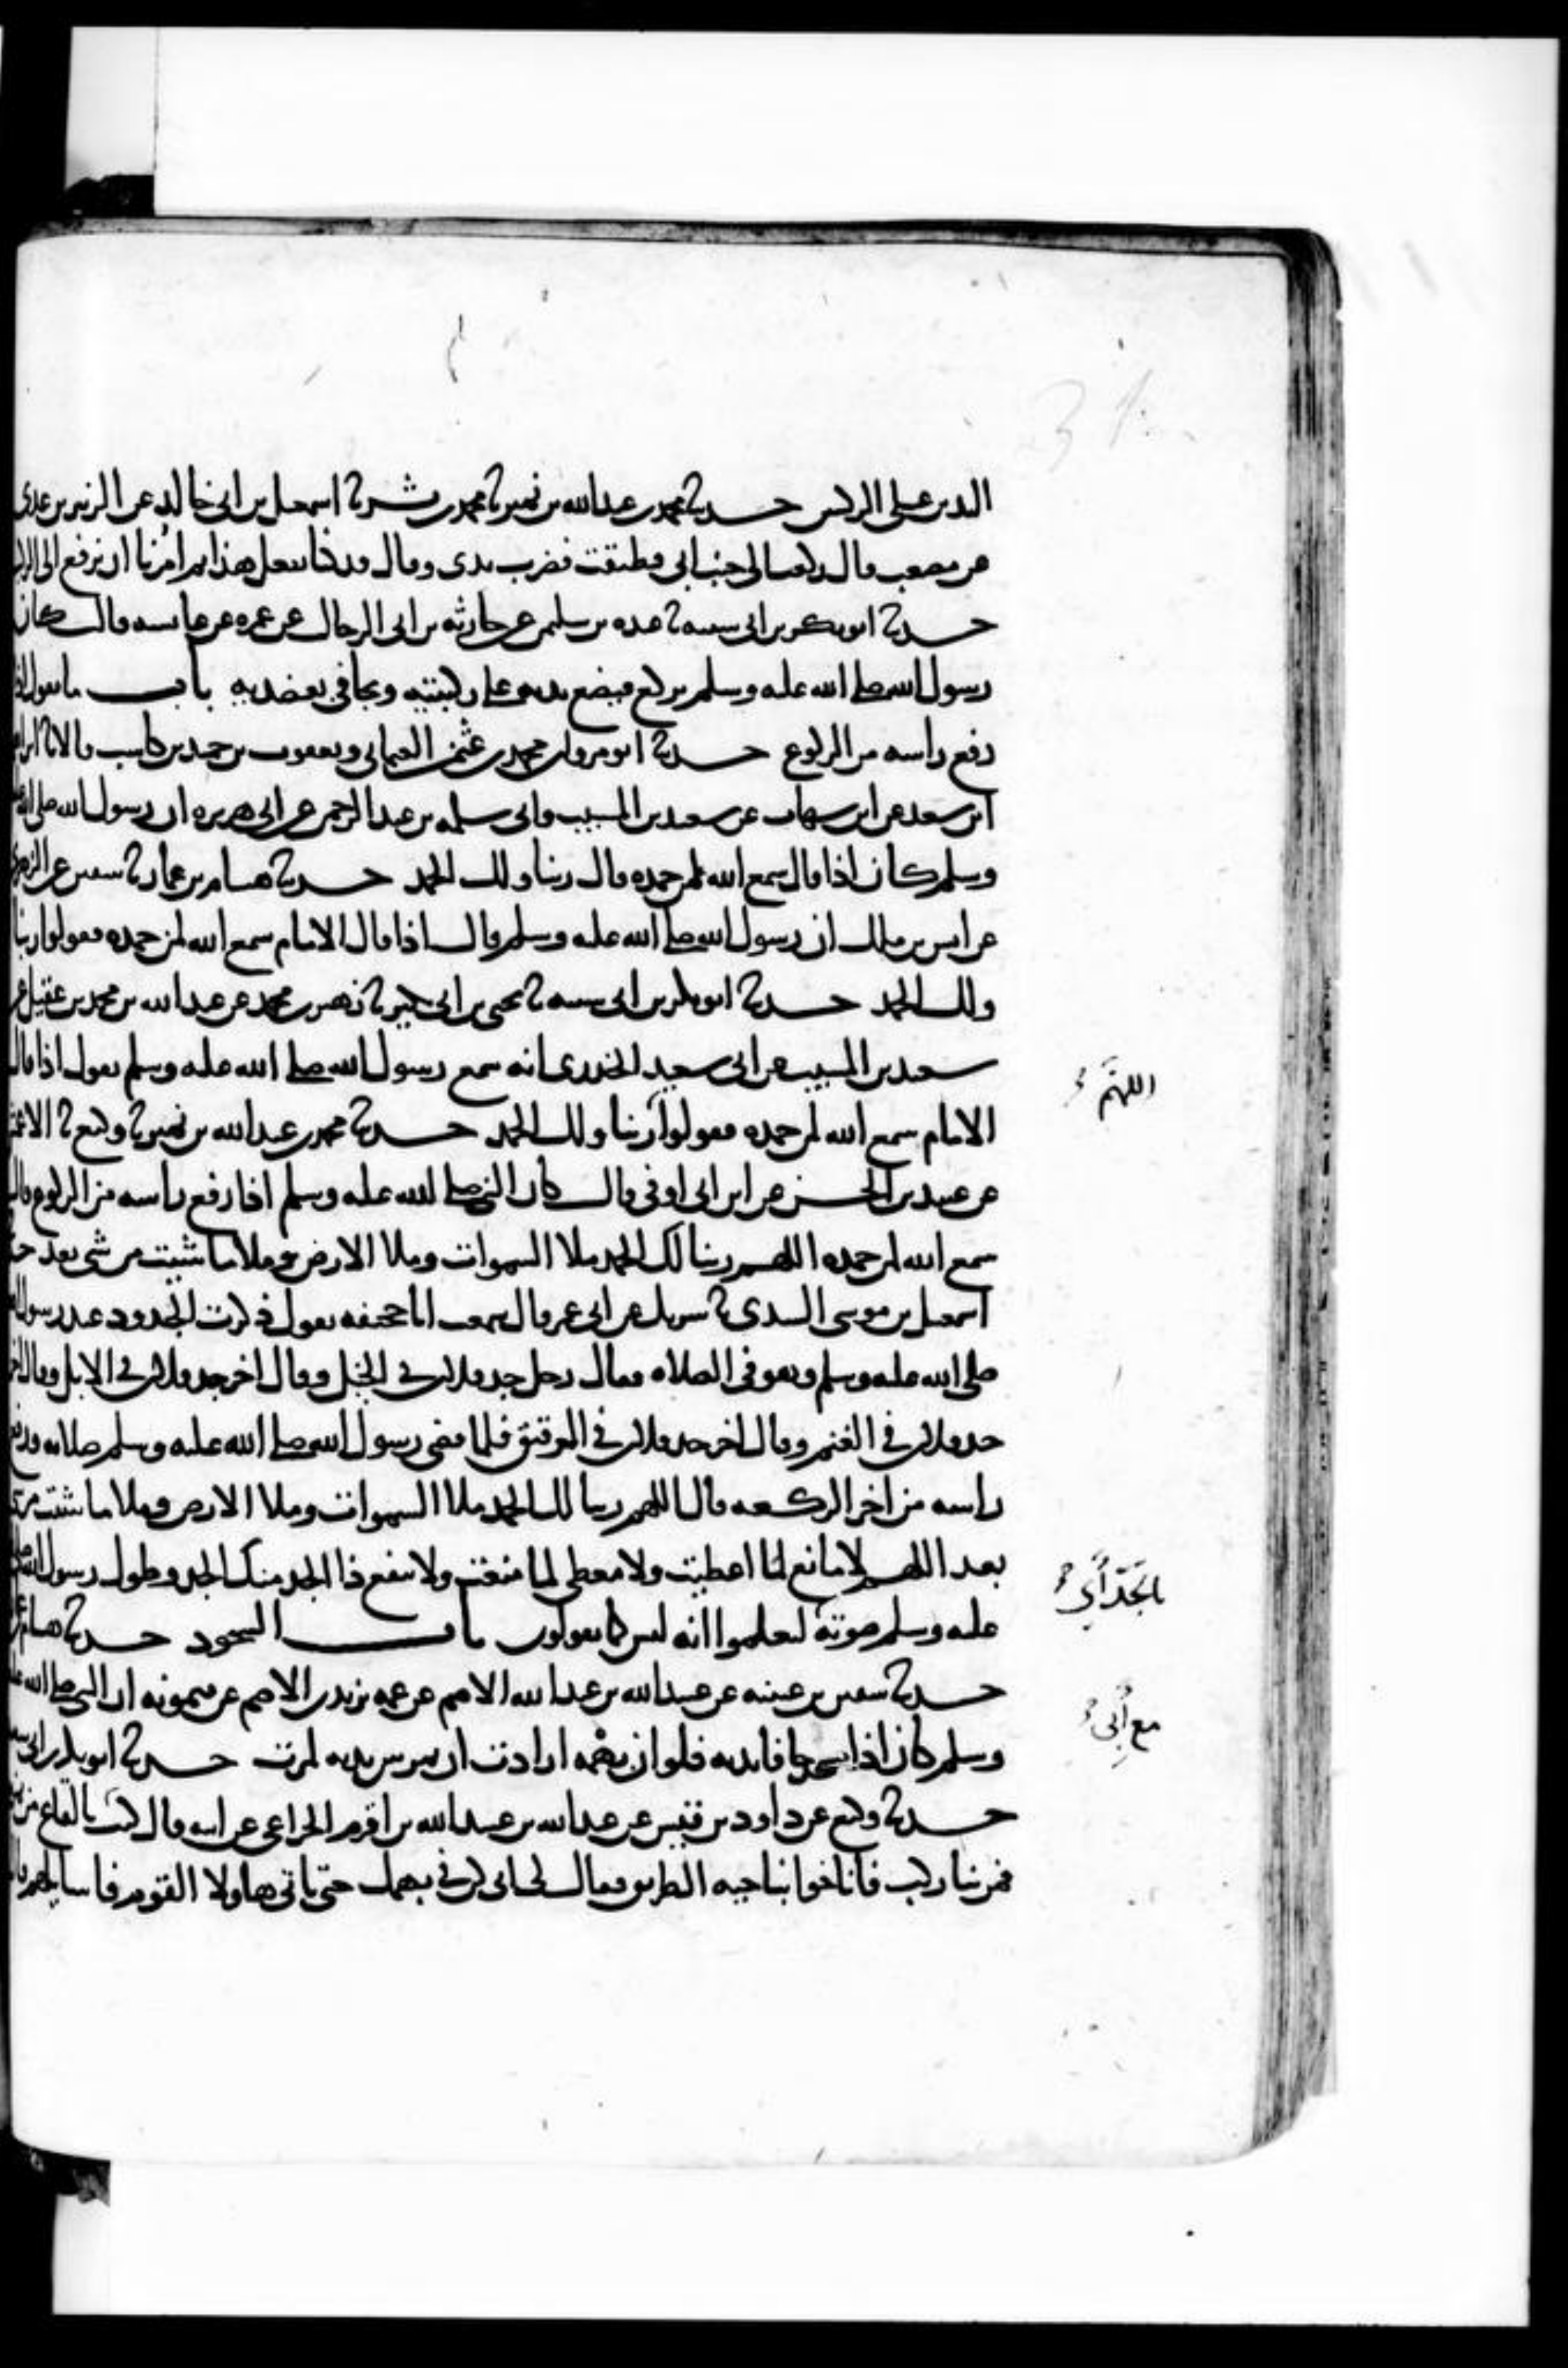 اليدين على الركبتين حدثنا محمد بن عبد الله بن نمير نا محمد بن بشر نا اسمعيل بن ابي خالد عن الزبير بن عدي
عن مصعب قال ركعت الى جنب ابي فطبقت فضرب يدي وقال قد كنا نفعل هذا ثم امرنا ان نرفع الى الركب
حدثنا ابو بكر بن ابي شيبه نا عبده بن سليمن عن حارثه بن ابي الرجال عن عمره عن عايشه قالت كان
رسول الله صلى الله عليه وسلم يركع فيضع يديه على ركبتيه ويجافي بعضديه باب ما يقول اذا
رفع راسه من الركوع حدثنا ابو مروان محمد بن عثمن العثماني ويعقوب بن حميد بن كاسب قالا نا ابراهيم
ابن سعد عن ابن شهاب عن سعيد بن المسيب وابي سلمه بن عبد الرحمن عن ابي هريره ان رسول الله صلى الله عليه
وسلم كان اذا قال سمع الله لمن حمده قال ربنا ولك الحمد حدثنا هشام بن عمار نا سفين عن الزهري
عن انس بن ملك ان رسول الله صلى الله عليه وسلم قال اذا قال الامام سمع الله لمن حمده فقولوا ربنا
ولك الحمد حدثنا ابو بكر بن ابي شيبه نا يحيى بن ابي بكير نا زهير بن محمد عن عبد الله بن محمد بن عقيل عن
سعيد بن المسيب عن ابي سعيد الخدري انه سمع رسول الله صلى الله عليه وسلم يقول اذا قال
اللهم
الامام سمع الله لمن حمده فقولوا ربنا ولك الحمد حدثنا محمد بن عبد الله بن نمير نا وكيع نا الاعمش
عن عبيد بن الحسن عن ابن ابي اوفى قال كان النبي صلى الله عليه وسلم اذا رفع راسه من الركوع قال
سمع الله لمن حمده اللهم ربنا لك الحمد ملا السموات وملا الارض وملا ما شيت من شي بعد
اسمعيل بن موسى السدي نا شريك عن ابي عمر قال سمعت ابا جحيفه يقول ذكرت الجدود عند رسول الله
صلى الله عليه وسلم وهو في الصلاه فقال رجل جد فلان في الخيل وقال اخر جد فلان في الابل وقال اخر
جد فلان في الغنم وقال اخر جد فلان في الرقيق فلما قضى رسول الله صلى الله عليه وسلم صلاته ورفع
راسه من اخر الركعه قال اللهم ربنا لك الحمد ملا السموات وملا الارض وملا ما شيت من شي
بعد اللهم لا مانع لما اعطيت ولا معطي لما منعت ولا ينفع ذا الجد منك الجد وطول رسول الله صلى الله
عليه وسلم صوته ليعلموا انه ليس كما يقولون باب السجود حدثنا هشام بن عمار
حدثنا سفين بن عيينه عن عبيد الله بن عبد الله الاصم عن عمه يزيد بن الاصم عن ميمونه ان النبي صلى الله عليه
وسلم كان اذا سجد جافا يديه فلو ان بهمه ارادت ان تمر بين يديه لمرت حدثنا ابو بكر بن ابي شيبه
حدثنا وكيع عن داود بن قيس عن عبد الله بن عبيد الله بن اقرم الخزاعي عن ابيه قال كنت بالقاع من
مع أبي
فمر بنا ركب فاناخوا بناحيه الطريق فقال لي ابي كن في بهمك حتى اتي هاولا القوم فاسايلهم